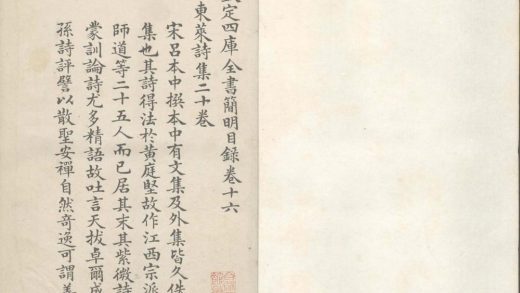 定四庫全書簡明目錄卷十六
東萊詩集二十卷
宋呂本中撰本中有文集及外集皆久佚
集也其詩得法於黃庭堅故作江西宗派
師道等二十五人而已居其末其紫微詩
蒙訓論詩尤多精語故吐言天拔卓爾成
孫詩評譬以散聖安禪自然奇逸可謂善